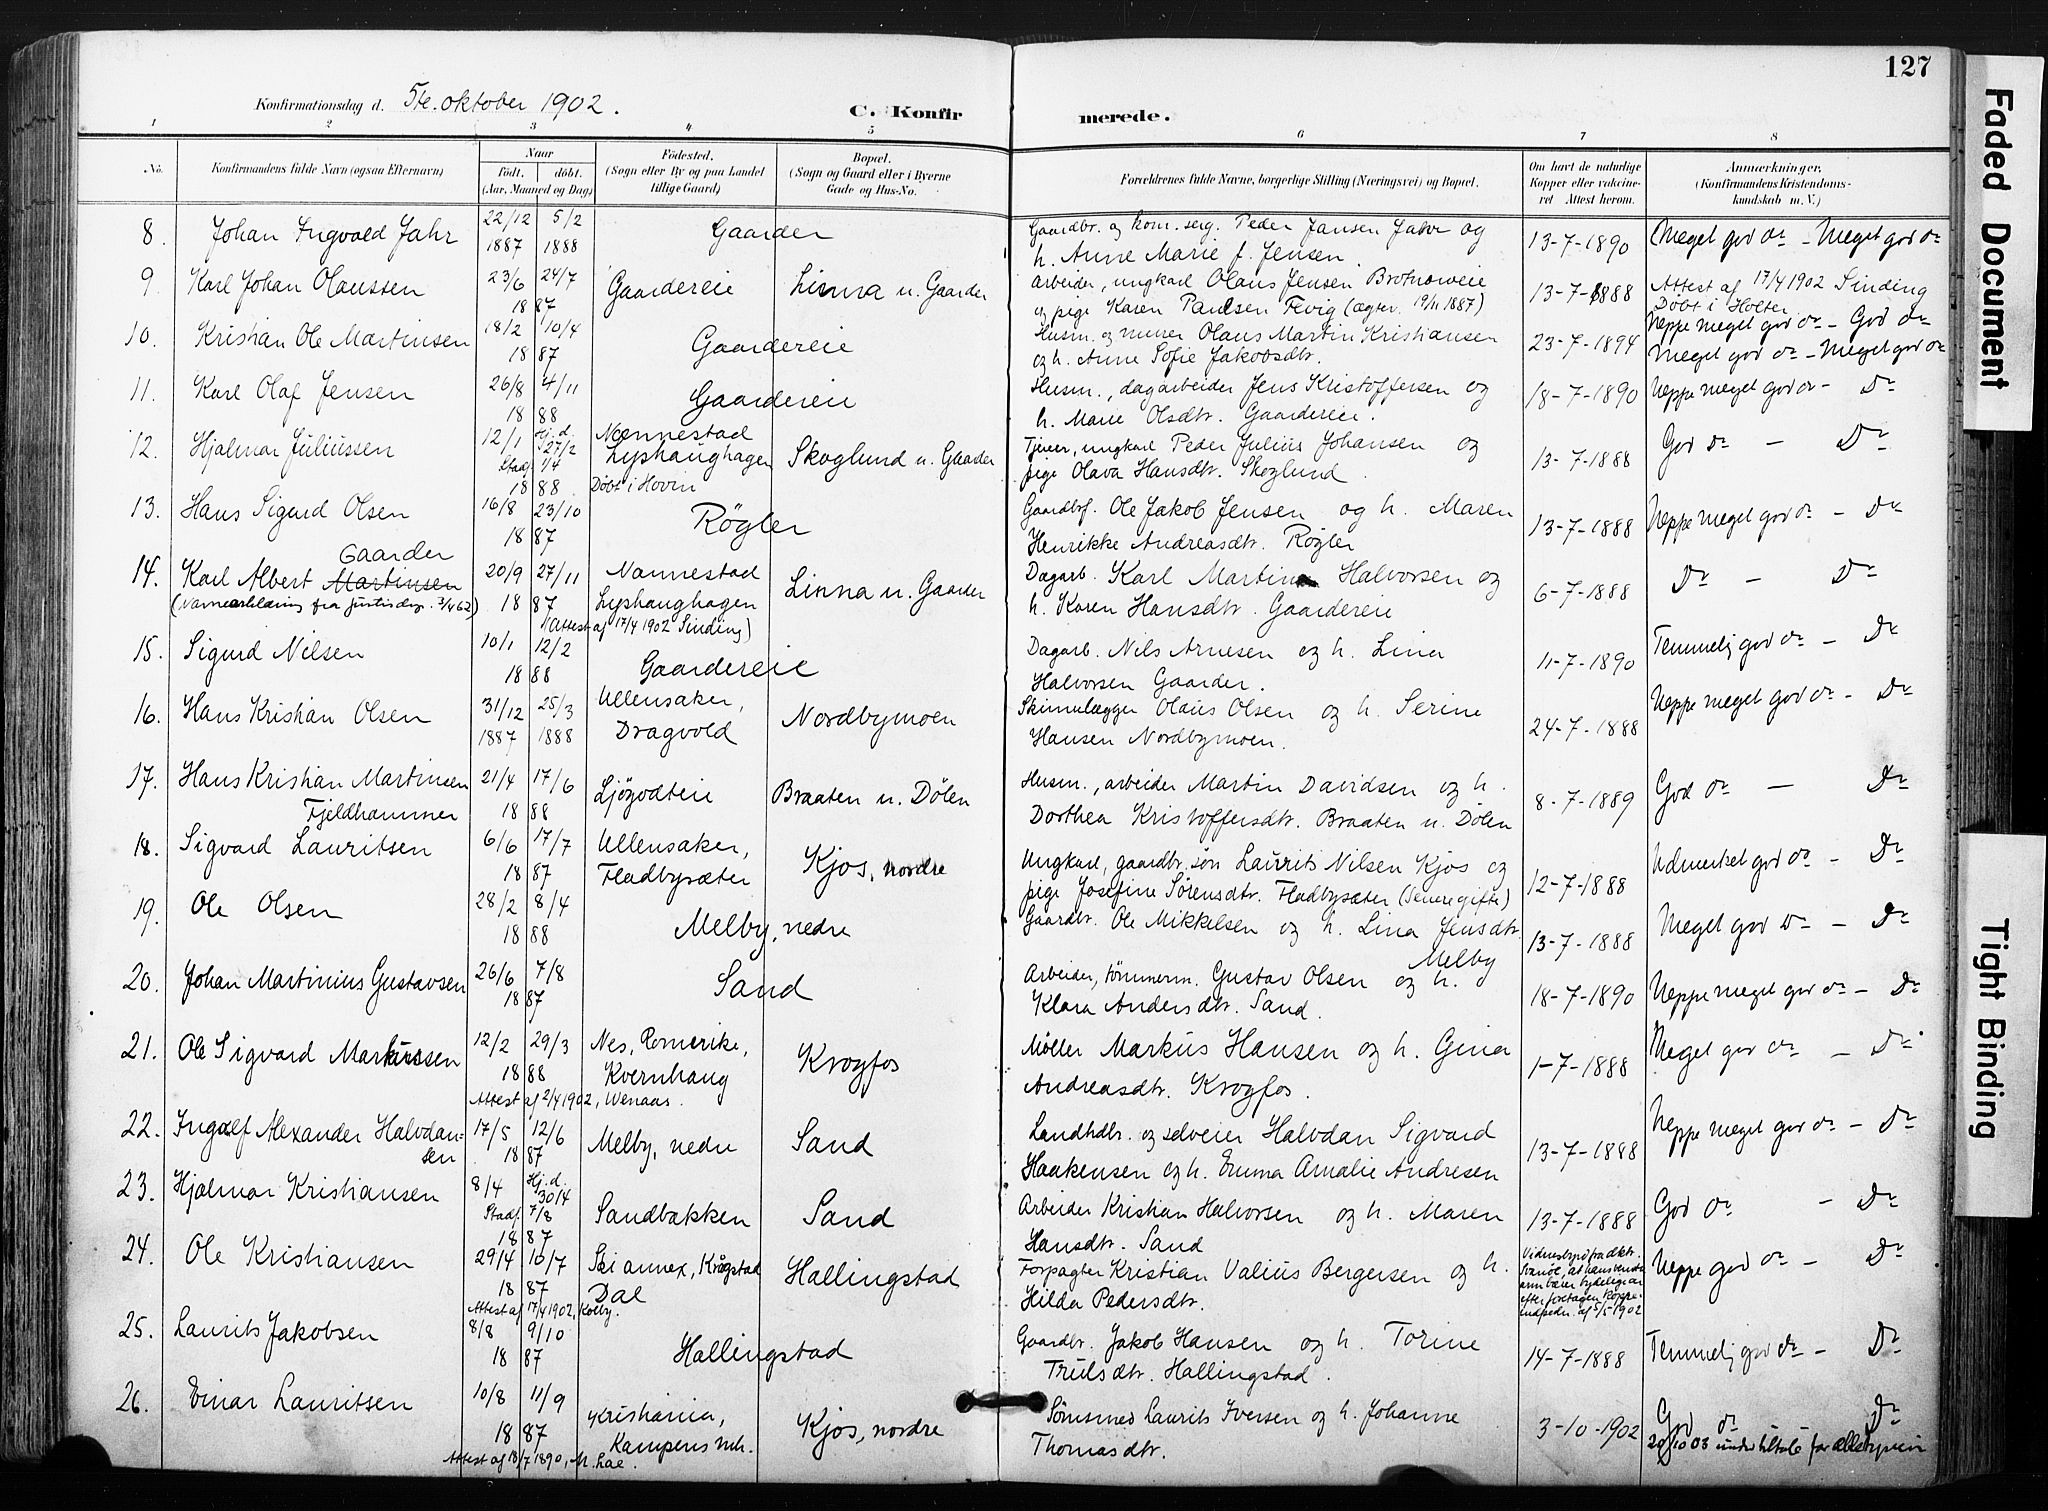 127
Konfirmationsdag d. 5te. oktober 1902.
C. Konfirmerede.
1 2 3 4 5 6 7 8
No. Konfirmandens fulde Navn (ogsaa Efternavn) Naar Födt. döbt. (Aar, Maaned og Dag) Födested. (Sogn eller By og paa Landet tillige Gaard) Bopæl. (Sogn og Gaard eller i Byerne Gade og Hus-No. Forældrenes fulde Navne, borgerlige Stilling (Næringsvei) og Bopæl. Om havt de naturlige Kopper eller vakcineret Attest herom. Anmærkninger. (Konfirmandens Kristendomskundskab m. V.)
8. Johan Ingvald Jahr 22/12 1887 5/2 1888 Gaarder
Gaardbr. og kom. serg. Peder Jansen Jahr og
h. Anne Marie f. Jensen. 13-7-1890 Meget god Do - Meget god Do
9. Karl Johan Olaussen 23/6 24/7 1887 Gaardereie Linna u. Gaarder
Arbeider, ungkarl Olaus Jensen Brotnoweie
og pige Karen Paulsen Fevig (ægtev. 19/11 1887) 13-7-1888 Attest af 17/4 1902 Sinding
Döbt i Holter
Neppe meget god Do - God Do
10. Kristian Ole Martinsen 18/2 10/4 1887 Gaardereie
Husm. og murer Olaus Martin Kristiansen
og h. Anne Sofie Jakobsdtr. 23-7-1894 Meget god Do - Meget god Do
11. Karl Olaf Jensen 26/8 4/11 1888 Gaardereie
Husm., dagarbeider Jens Kristoffersen og
h. Marie Olsdtr. Gaardereie. 18-7-1890 Neppe meget god Do - Do
12. Hjalmar Juliussen 12/1 Hj.d. 27/2 Stadf. 1/4 1888 Nannestad Lyshaughagen Döbt i Hovin Skoglund u. Gaarder
Tjener, ungkarl Peder Julius Johansen og
pige Olava Hansdtr. Skoglund. 13-7-1888 God Do - Do
13. Hans Sigurd Olsen 16/8 23/10 1887 Røgler
Gaardbr. Ole Jakob Jensen og h. Maren
Henrikke Andreasdtr. Røgler 13-7-1888 Neppe meget god Do - Do
Gaarder
14. Karl Albert Martinsen 20/9 27/11 1887 Nannestad Lyshaughagen Linna u. Gaarder
(Navneerklæring fra justisdep. 3/4 62) (Attest af 17/4 1902 Sinding)
Dagarb. Karl Martin Halvorsen og
h. Karen Hansdtr. Gaardereie 6-7-1888 Do - Do
15. Sigurd Nilsen 10/1 12/2 1888 Gaardereie
Dagarb. Nils Arnesen og h. Lina
Halvorsen Gaarder. 11-7-1890 Temmelig god Do - Do
16. Hans Kristian Olsen 31/12 1887 25/3 1888 Ullensaker, Dragvold Nordbymoen
Skinnelægger Olaus Olsen og h. Serine
Hansen Nordbymoen. 24-7-1888 Neppe meget god Do - Do
17. Hans Kristian Martinsen Fjeldhammer 21/4 17/6 1888 Ljøgodteie Braaten u. Dølen
Husm., arbeider Martin Davidsen og h.
Dorthea Kristoffersdtr. Braaten u. Dølen 8-7-1889 God Do - Do
18. Sigvard Lauritsen 6/6 17/7 1887 Ullensaker, Fladbysæter Kjos, nordre
Ungkarl, gaardbr. søn Laurits Nilsen Kjos og
pige Josefine Sørensdtr. Fladbysæter (Senere gifte) 12-7-1888 Udmerket god Do - Do
19. Ole Olsen 28/2 8/4 1888 Melby, nedre
Gaardbr. Ole Mikkelsen og h. Lina Jensdtr.
Melby 13-7-1888 Meget god Do - Do
20. Johan Martinius Gustavsen 26/6 7/8 1887 Sand
Arbeider, tømmerm. Gustav Olsen og h.
Klara Andersdtr. Sand. 18-7-1890 Neppe meget god Do - Do
21. Ole Sigvard Markussen 12/2 29/3 1888 Nes, Romerike, Kvernhaug Krogfos
Attest af 2/4 1902, Wenaas.
Møller Markus Hansen og h. Gina
Andreasdtr. Krogfos. 1-7-1888 Meget god Do - Do
22. Ingolf Alexander Halvdansen 17/5 12/6 1887 Melby, nedre Sand
Landhdlr. og selveier Halvdan Sigvard
Haakensen og h. Emma Amalie Andresen 13-7-1888 Neppe meget god Do - Do
23. Hjalmar Kristiansen 8/4 Hj.d. 30/4 Stadf. 7/8 1887 Sandbakken Sand
Arbeider Kristian Halvorsen og h. Maren
Hansdtr. Sand 13-7-1888 God Do - Do
24. Ole Kristiansen 29/4 10/7 1887 Ski annex, Kråkstad Dal Hallingstad
Attest af 17/4 1902, Kolby.
Forpagter Kristian Valius Bergersen og h.
Hilda Pedersdtr. Neppe god Do - Do
25. Laurits Jakobsen 8/8 9/10 1887 Hallingstad
Gaardbr. Jakob Hansen og h. Torine
Trulsdtr. Hallingstad. 14-7-1888 Temmelig god Do - Do
26. Einar Lauritsen 10/8 11/9 1887 Kristiania, Kampens mh. Kjos, nordre
Attest af 18/7 1890, M. Lae.
Sømsmed Laurits Iversen og h. Johanne
Thomasdtr. 3-10-1902 God Do Do
20/10 03 under tiltale for
Faded Document
Tight Binding